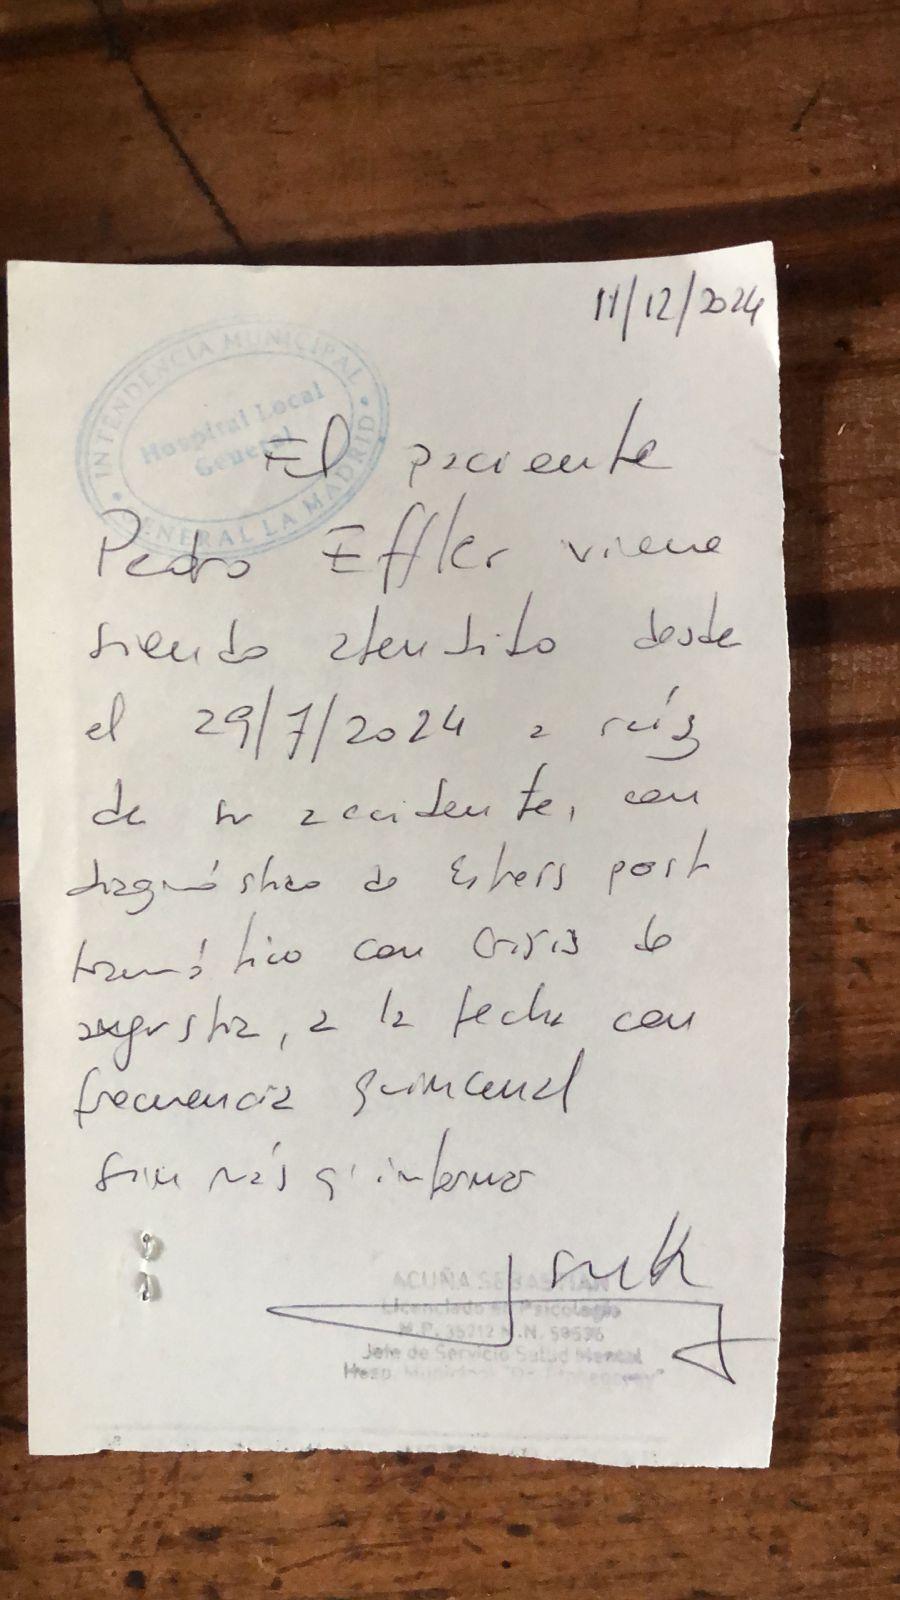 11/12/2024
INTENDENCIA MUNICIPAL
Hospital Local
General
GENERAL LA MADRID
El paciente
Pedro Effler viene
siendo atendido desde
el 29/7/2024 a raíz
de su accidente, con
diagnóstico de Estrés post
traumático con crisis de
angustia, a la fecha con
frecuencia quincenal
sin más q' informo
ACUÑA SEBASTIAN
Licenciado en Psicología
M.P. 35212 M.N. 59576
Jefe de Servicio Salud Mental
Hosp. Municipal